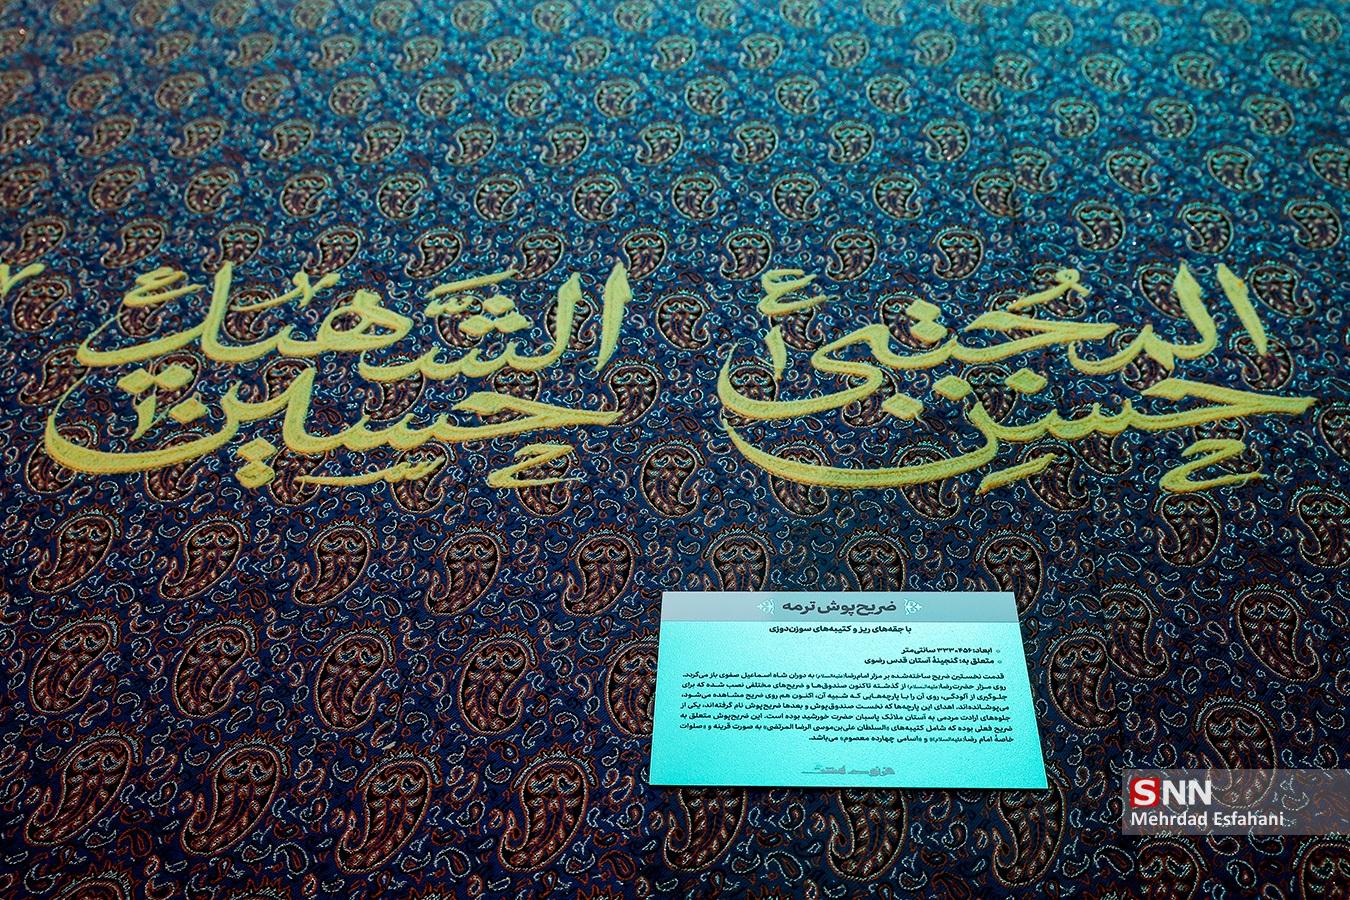 المجتبى
حسن
الشهید
حسین
ضریح‌پوش ترمه
با جقه‌های ریز و کتیبه‌های سوزن‌دوزی
ابعاد: ۴۵۶×۳۳۳ سانتی‌متر
متعلق به: گنجینهٔ آستان قدس رضوی
قدمت نخستین ضریح ساخته‌شده بر مزار امام رضا(علیه‌السلام) به دوران شاه اسماعیل صفوی باز می‌گردد.
روی مزار حضرت رضا(علیه‌السلام) از گذشته تاکنون صندوق‌ها و ضریح‌های مختلفی نصب شده که برای
جلوگیری از آلودگی، روی آن را با پارچه‌هایی که شبیه آن، اکنون هم روی ضریح مشاهده می‌شود،
می‌پوشانده‌اند. اهدای این پارچه‌ها که نخست صندوق‌پوش و بعدها ضریح‌پوش نام گرفته‌اند، یکی از
جلوه‌های ارادت مردمی به آستان ملائک پاسبان حضرت خورشید بوده است. این ضریح‌پوش متعلق به
ضریح فعلی بوده که شامل کتیبه‌های «السلطان علی‌بن‌موسی الرضا المرتضی» به صورت قرینه و «صلوات
خاصهٔ امام رضا(علیه‌السلام)» و «اسامی چهارده معصوم» می‌باشد.
SNN
Mehrdad Esfahani